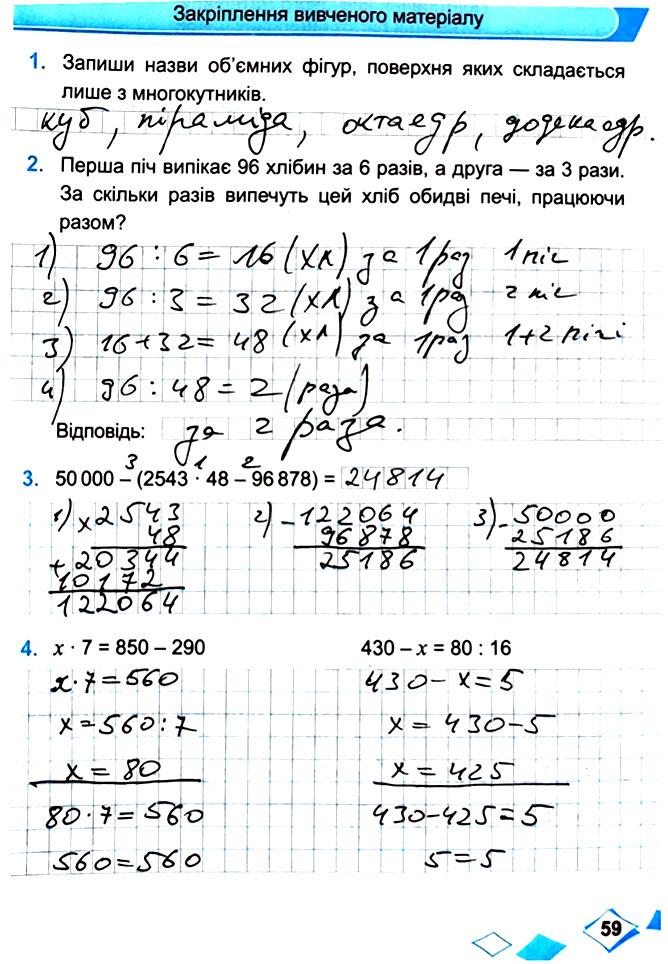 Закріплення вивченого матеріалу
1. Запиши назви об'ємних фігур, поверхня яких складається
лише з многокутників.
куб, піраміда, октаедр, додекаедр.
2. Перша піч випікає 96 хлібин за 6 разів, а друга — за 3 рази.
За скільки разів випечуть цей хліб обидві печі, працюючи
разом?
1) 96 : 6 = 16 (хл) за 1 раз 1 піс
2) 96 : 3 = 32 (хл) за 1 раз 2 піс
3) 16 + 32 = 48 (хл) за 1 раз 1+2 пічі
4) 96 : 48 = 2 (раза)
Відповідь: за 2 раза.
3 1 2
3. 50 000 – (2543 · 48 – 96 878) = 24814
1) × 2543 2) – 122064 3) – 50000
48 96878 25186
+ 20344 25186 24814
10172
122064
4. x · 7 = 850 – 290 430 – x = 80 : 16
x · 7 = 560 430 – x = 5
x = 560 : 7 x = 430 – 5
x = 80 x = 425
80 · 7 = 560 430 – 425 = 5
560 = 560 5 = 5
59